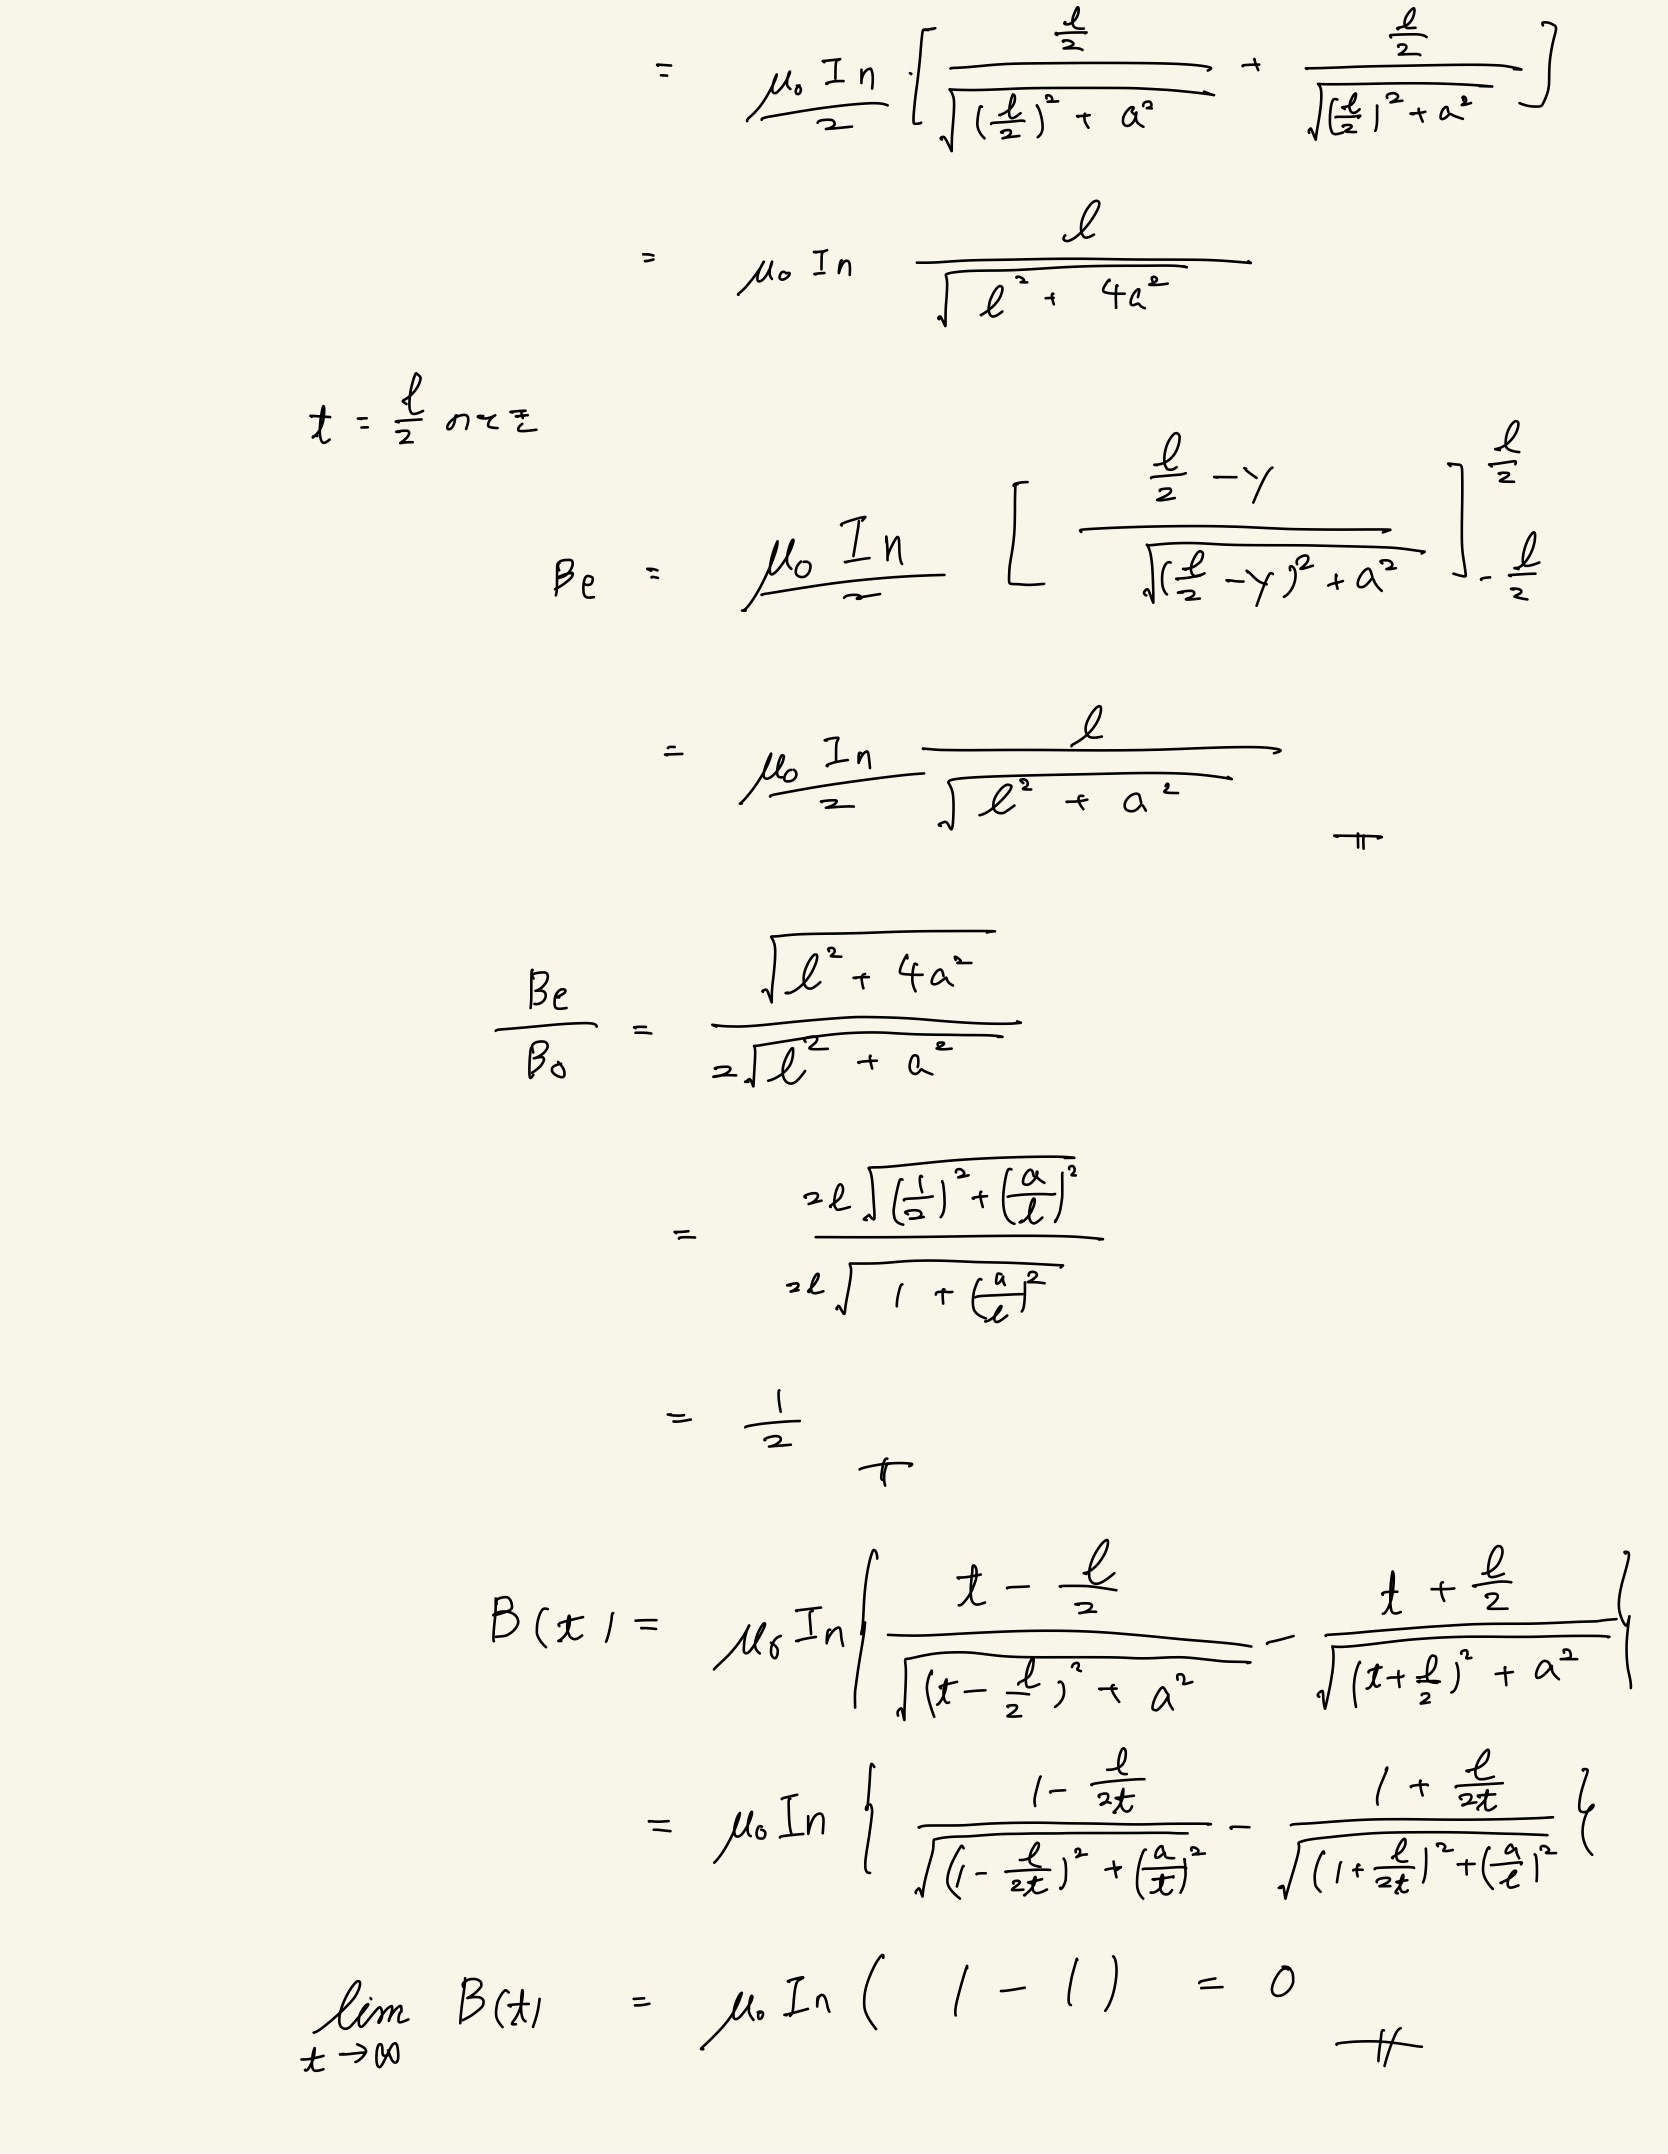 = μ₀ I n / 2 [ (l/2) / √((l/2)² + a²) + (l/2) / √((l/2)² + a²) ]
= μ₀ I n l / √(l² + 4a²)
t = l/2 のとき
Be = μ₀ I n / 2 [ (l/2 - y) / √((l/2 - y)² + a²) ]_{-l/2}^{l/2}
= μ₀ I n / 2 l / √(l² + a²)
Be / B₀ = √(l² + 4a²) / 2√(l² + a²)
= 2l √((1/2)² + (a/l)²) / 2l √(1 + (a/l)²)
= 1/2
B(t) = μ₀ I n { (t - l/2) / √((t - l/2)² + a²) - (t + l/2) / √((t + l/2)² + a²) }
= μ₀ I n { (1 - l/2t) / √((1 - l/2t)² + (a/t)²) - (1 + l/2t) / √((1 + l/2t)² + (a/l)²) }
lim_{t→∞} B(t) = μ₀ I n ( 1 - 1 ) = 0